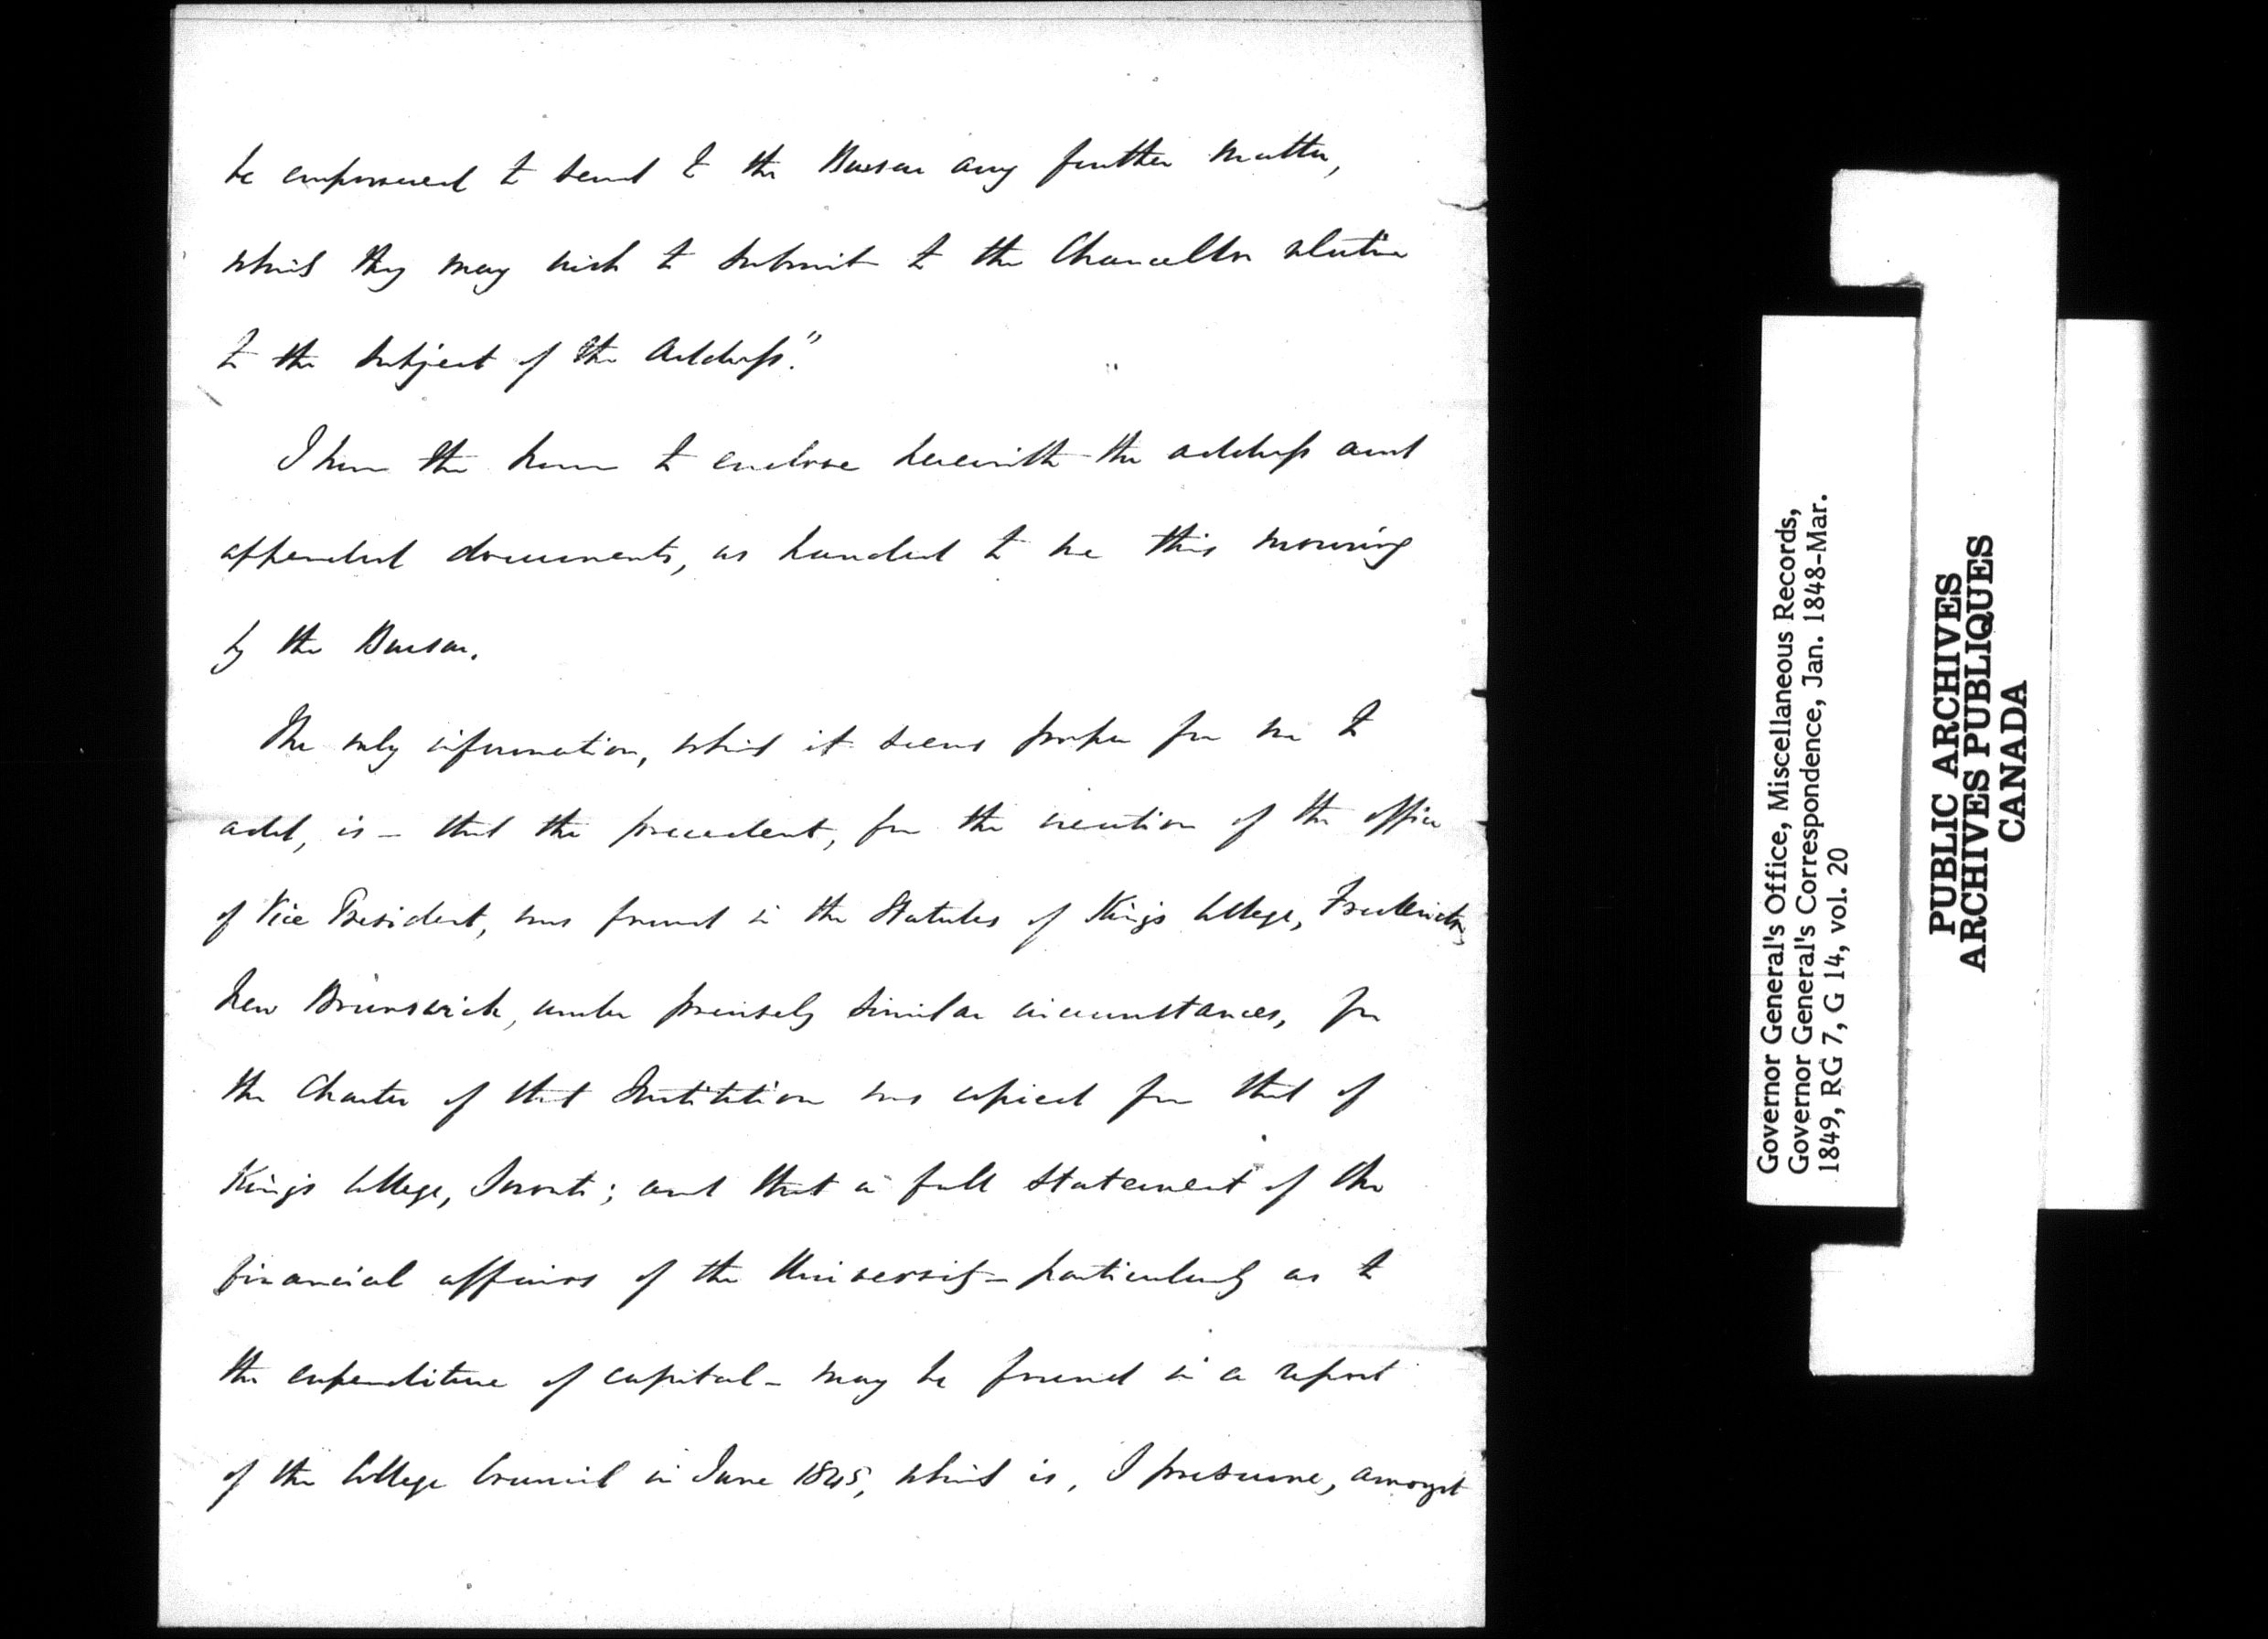 be empowered to send to the Bursar any further matter,
which they may wish to submit to the Chancellor relative
to the subject of the Address".
I have the honor to enclose herewith the address and
appended documents, as handed to me this morning
by the Bursar.
The only information, which it seems proper for me to
add, is – that the precedent, for the creation of the office
of Vice President, was found in the Statutes of King's College, Fredericton,
New Brunswick, under precisely similar circumstances, for
the Charter of that Institution was copied from that of
King's College, Toronto; and that a full statement of the
financial affairs of the University – particularly as to
the expenditure of capital – may be found in a report
of the College Council in June 1845, which is, I presume, amongst
Governor General's Office, Miscellaneous Records,
Governor General's Correspondence, Jan. 1848-Mar.
1849, RG 7, G 14, vol. 20
PUBLIC ARCHIVES
ARCHIVES PUBLIQUES
CANADA